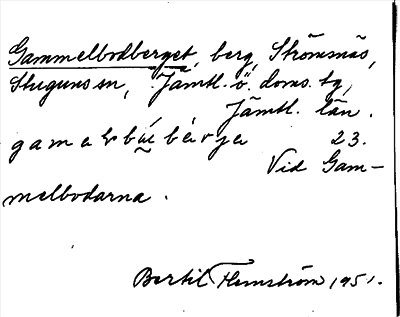 Gammelbodberget, berg, Strömnäs,
Stuguns sn, Jämtl. ö. doms. tg,
Jämtl. län.
23.
Vid Gam-
melbodarna.
Bertil Flemström 1951.